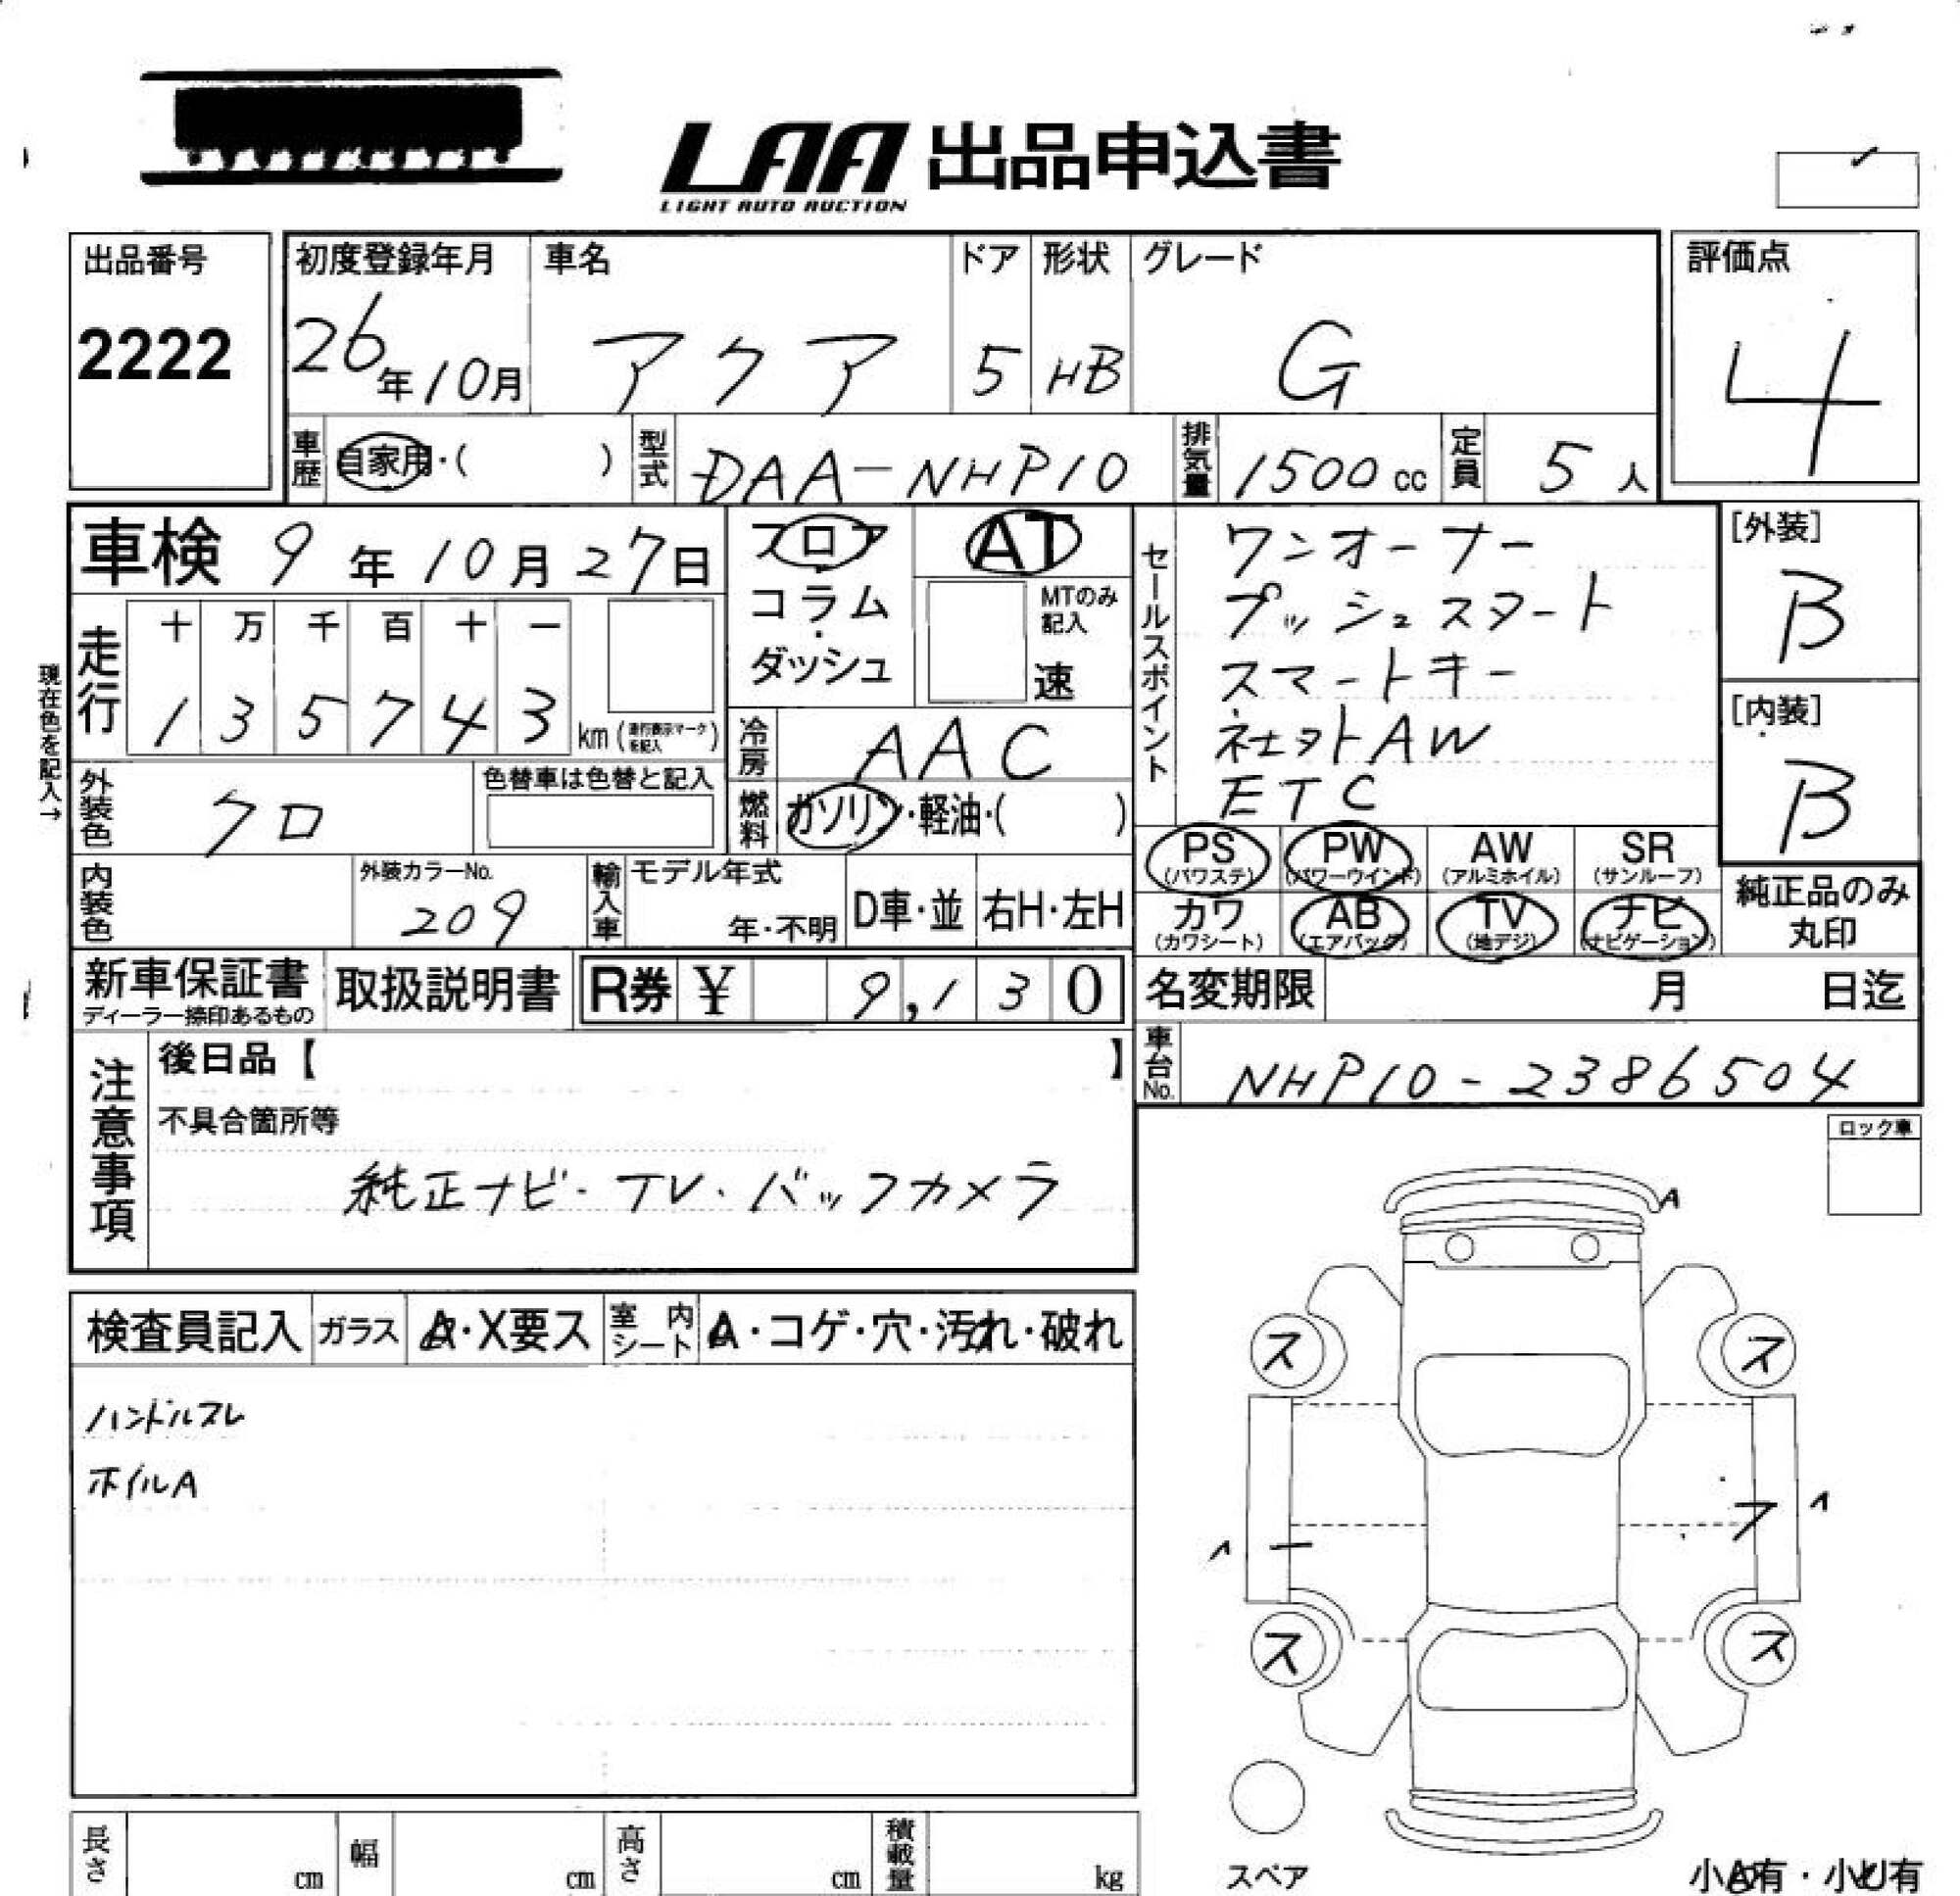 LAA 出品申込書
LIGHT AUTO AUCTION
出品番号
2222
初度登録年月
26年10月
車名
アクア
ドア
5
形状
HB
グレード
G
評価点
4
車歴
自家用・( )
型式
DAA-NHP10
排気量
1500cc
定員
5人
車検 9年10月27日
フロア・コラム・ダッシュ
AT
MTのみ記入
速
セールスポイント
ワンオーナー
プッシュスタート
スマートキー
社外AW
ETC
[外装]
B
[内装]
B
現在色を記入→
走行
十 万 千 百 十 一
1 3 5 7 4 3 km (走行表示マークを記入)
冷房
AAC
外装色
クロ
色替車は色替と記入
燃料
ガソリン・軽油・( )
内装色
外装カラーNo.
209
輸入車
モデル年式
年・不明
D車・並
右H・左H
PS (パワステ)
PW (パワーウインド)
AW (アルミホイル)
SR (サンルーフ)
カワ (カワシート)
AB (エアバッグ)
TV (地デジ)
ナビ (ナビゲーション)
純正品のみ
丸印
新車保証書
ディーラー捺印あるもの
取扱説明書
R券 ¥ 9,130
名変期限 月 日迄
車台No.
NHP10-2386504
注意事項
後日品【 】
不具合箇所等
純正ナビ・TV・バックカメラ
ロック車
A
検査員記入
ガラス
A・X要ス
室内シート
A・コゲ・穴・汚れ・破れ
ハンドルスレ
ホイルA
ス ス
ス ス
スペア
長さ cm
幅 cm
高さ cm
積載量 kg
小A有・小U有